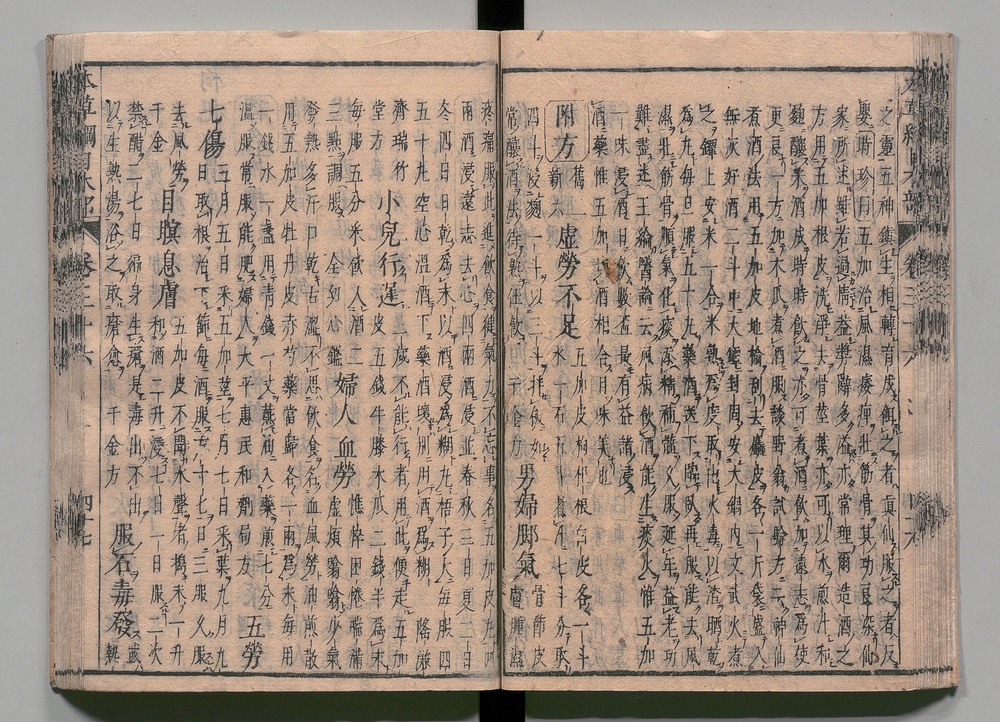 之靈五神鎮生相轉育成餌之者真仙服之者反
嬰時珍曰五加治風濕痿痺壯筋骨其功良深仙
家所述雖若過情蓋奬辭多溢亦常理爾造酒之
方用五加根皮洗淨去骨莖葉亦可以水煎汁和
麴釀米酒成時時飲之亦可煮酒飲加遠志為使
更良一方加木瓜煮酒服談野翁試驗方云神仙
煮酒法用五加皮地榆刮去麤皮各一斤袋盛入
無灰好酒二斗中大罈封固安大鍋內文武火煮
之罈上安米一合米熟為度取出火毒以渣晒乾
為丸每旦服五十丸藥酒送下臨臥再服能去風
濕壯筋骨順氣化痰添精補髓久服延年益老功
難盡述王綸醫論云風病飲酒能生痰火惟五加
一味浸酒日飲數盃最有益諸浸
酒藥惟五加與酒相合且味美也
附方 舊二新六 虛勞不足 五加皮枸杞根白皮各一斗水一石五斗煮汁七斗分取
四斗浸麴一斗以三斗拌飯如
常釀酒法待熟任飲 千金方 男婦脚氣 骨節皮膚腫濕
疼痛服此進飲食健氣力不忘事名五加皮丸四
兩酒浸遠志去心四兩酒浸並春秋三日夏二日
冬四日日乾為末以酒浸為糊丸梧子大每服四
五十丸空心溫酒下藥酒壞別用酒為糊 薩謙
齋瑞竹堂方 小兒行遲 三歲不能行者用此便走五加
皮五錢牛膝木瓜二錢半為末
每服五分米飲入酒二
三點調服 全幼心鑑 婦人血勞 憔悴困倦喘滿虛煩噏噏少氣
發熱多汗口乾舌澀不思飲食名血風勞油煎散
用五加皮牡丹皮赤芍藥當歸各一兩為末每用
一錢水一盞用青錢一文蘸油入藥煎七分
溫服常服能肥婦人 太平惠民和劑局方 五勞
七傷 五月五日采五加莖七月七日采葉九月九
日取根治下篩每酒服方寸匕日三服久服
去風勞 千金 目瞑息膚 五加皮不聞水聲者搗末一升
和酒二升浸七日一日服二次
禁醋二七日徧身生瘡是毒出不出
以生熟湯浴之取瘡愈 千金方 服石毒發 或熱
本草綱目木部 卷三十六 四十七